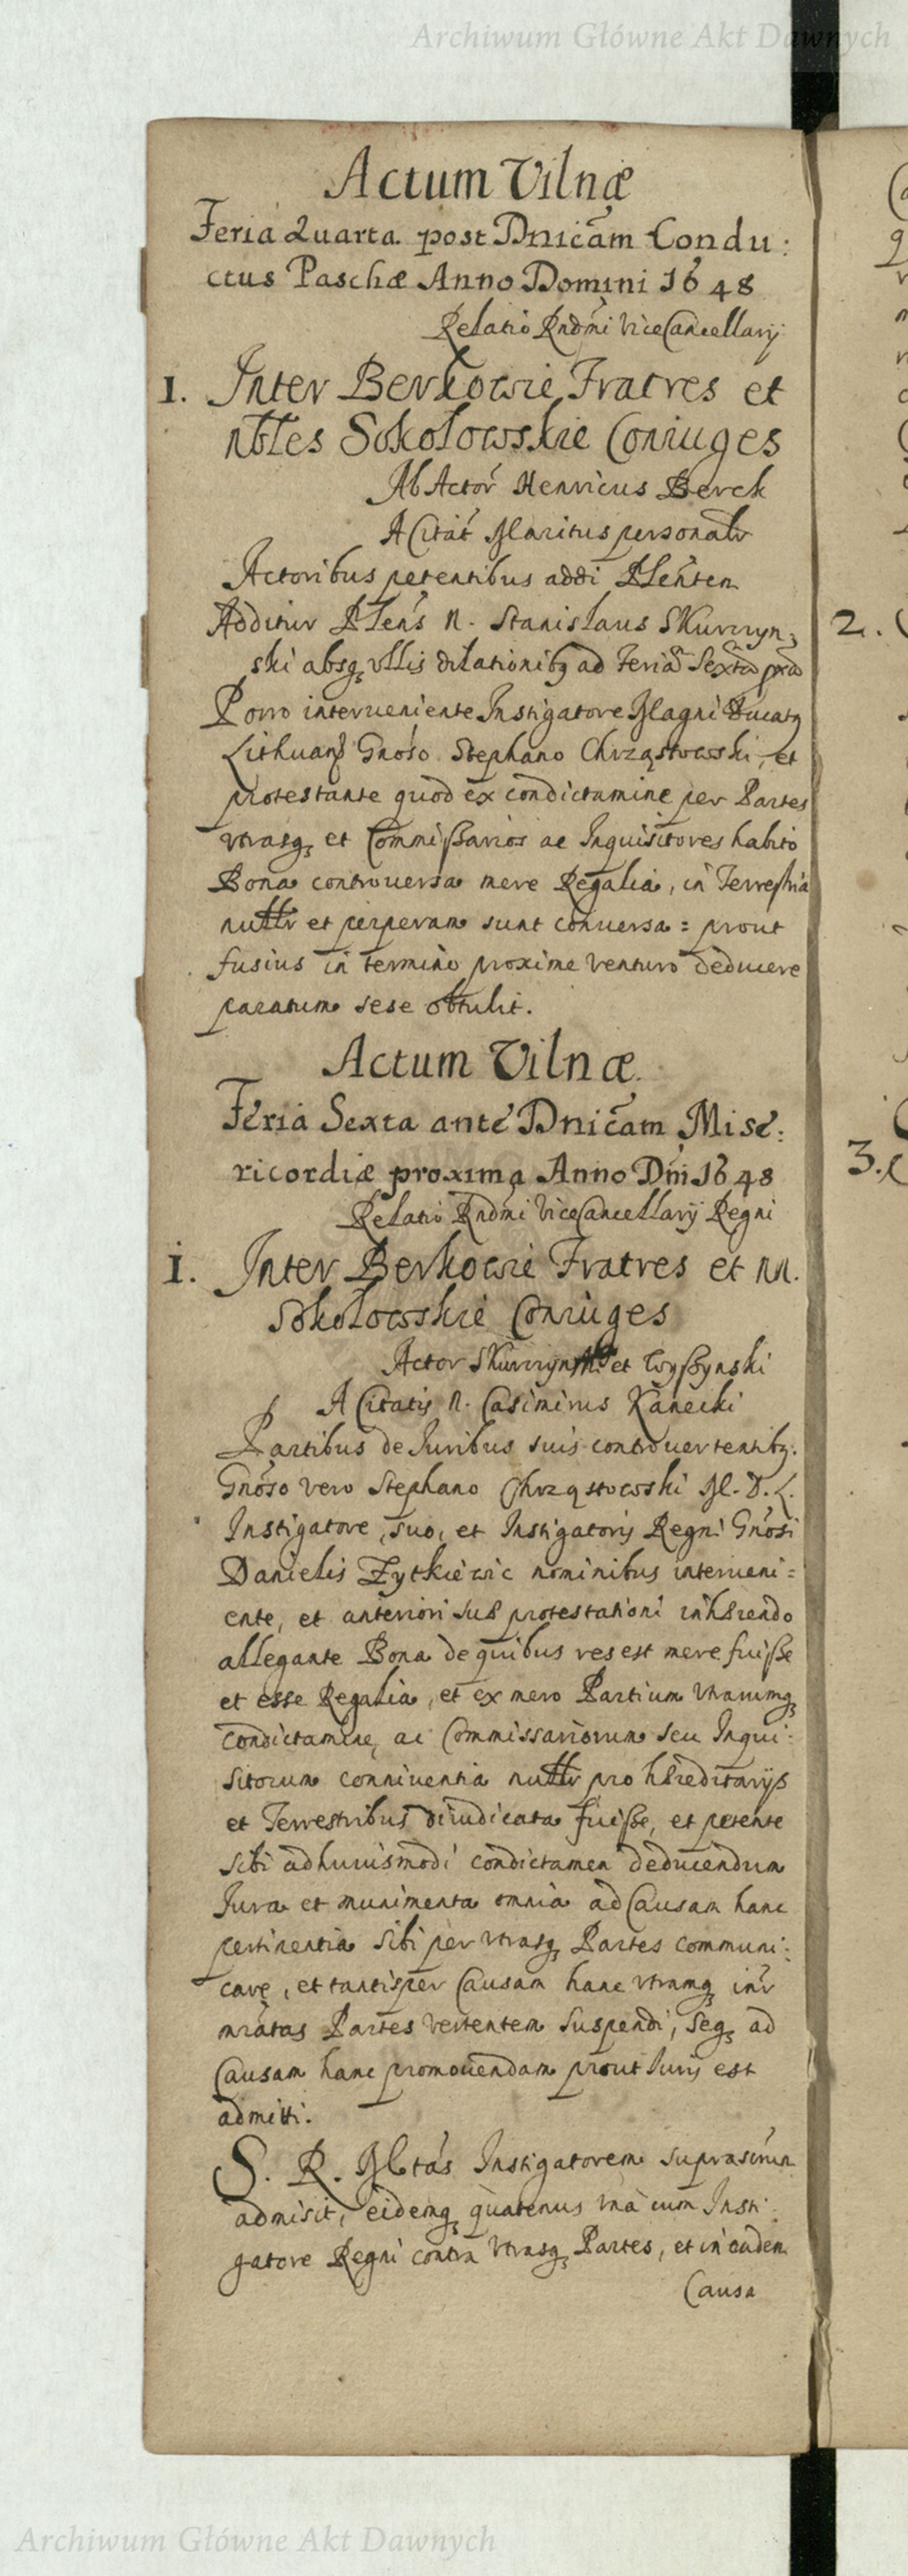 Archiwum Główne Akt Dawnych
Actum Vilnæ
Feria Quarta post Dnicam Condu:
ctus Paschæ Anno Domini 1648
Relatio Rndmi ViceCancellarij
1. Inter Berkowie Fratres et
nbles Sokołowskie Coniuges
Ab Actor Henricus Berck
A Citat Maritus personalr
Actoribus petentibus addi Plenten
Additur Plens N. Stanislaus Skurzyn:
ski absq vllis dilationibq ad Feria Sexta
Porro interueniente Instigatore Magni Ducatq
Lithuan Gnoso Stephano Chrząstowski, et
protestante quod ex condictamine per Partes
vtrasq et Commißarios ac Inquisitores habito
Bona controuersa mere Regalia, in Terrestria
nullr et perperam sunt conuersa: prout
fusius in termino proxime venturo deducere
paratum sese obtulit.
Actum Vilnæ.
Feria Sexta ante Dnicam Mise:
ricordiæ proxima Anno Dni 1648
Relatio Rndmi ViceCancellarij Regni
1. Inter Berkowie Fratres et NN.
Sokołowskie Coniuges
Actor et Wyßynski
A Citatis N. Casimirus Kanecki
Partibus de Iuribus suis controuertentibq.
Gnoso vero Stephano Chrząstowski M. D. L.
Instigatore, suo, et Instigatoris Regni Gnosi
Danielis Zytkiewic nominibus interueni=
ente, et anteriori suæ protestationi inhærendo
allegante Bona de quibus res est mere fuiße
et esse Regalia, et ex mero Partium vtrarumq
condictamine, ac Commissariorum seu Inqui:
sitorum conniuentia nullr pro hæreditarijs
et Terrestribus diiudicata fuiße, et petente
sibi ad huiusmodi condictamen deducendum
Iura et munimenta omnia ad Causam hanc
pertinentia sibi per vtrasq Partes communi:
care, et tantisper Causam hanc vtramq intr
mratas Partes vertentem suspendi, seq ad
Causam hanc promouendam prout Iuris est
admitti.
S. R. Mtas Instigatorem suprascrum
admisit, eidemq quatenus vna cum Insti:
gatore Regni contra vtrasq Partes, et in eadem
Causa
2.
3.
Archiwum Główne Akt Dawnych